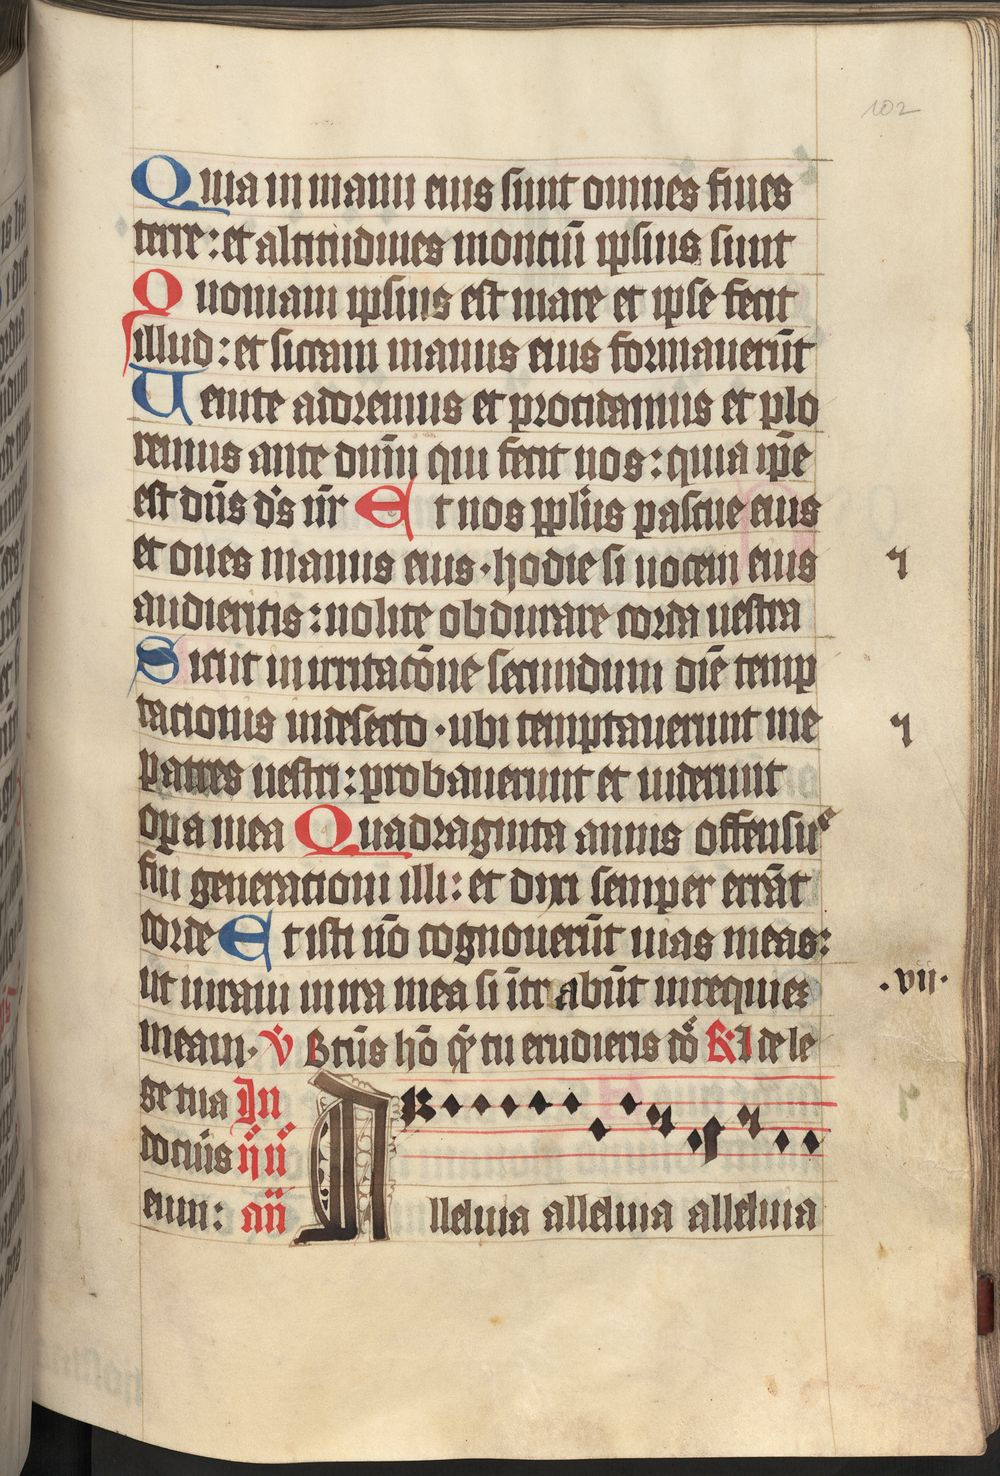 102
Quia in manu eius sunt omnes fines
terre : et altitudines monciū ipsius sunt
Quoniam ipsius est mare et ipse fecit
illud : et siccam manus eius formauerūt
Uenite adoremus et procidamus et plo
remus ante dnm̄ qui fecit nos : quia ip̄e
est dn̄s d's nr̄ Et nos ppl̄us pascue eius
et oues manus eius · hodie si uocem eius
audieritis : nolite obdurare corda uestra
Sicut in irritacōne secundum diē temp
tacionis in deserto · ubi temptauerunt me
patres uestri : probauerunt et uiderunt
op̄a mea Quadraginta annis offensus
fui generationi illi : et dixi semper errāt
corde Et isti nō cognouerūt uias meas :
ut iuraui in ira mea si ītrabūt in requiez
· vij ·
meam · v̄ Btūs hō q̄ tu erudieris dō
de le
ge tua In
docuīs
eum : an̄ Alleluia alleluia alleluia